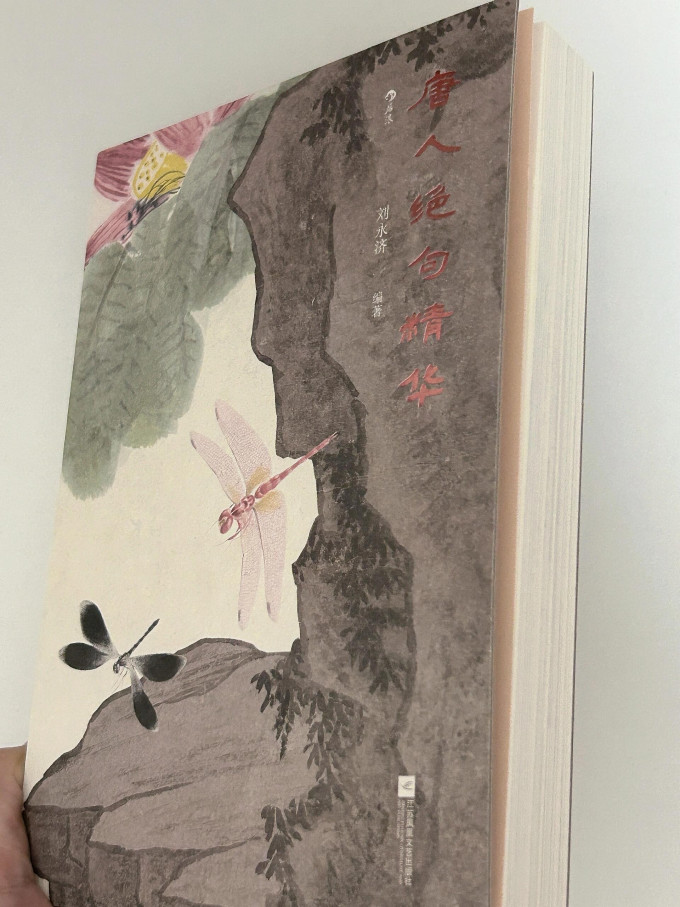 唐人绝句精华
后浪
刘永济 编著
江苏凤凰文艺出版社